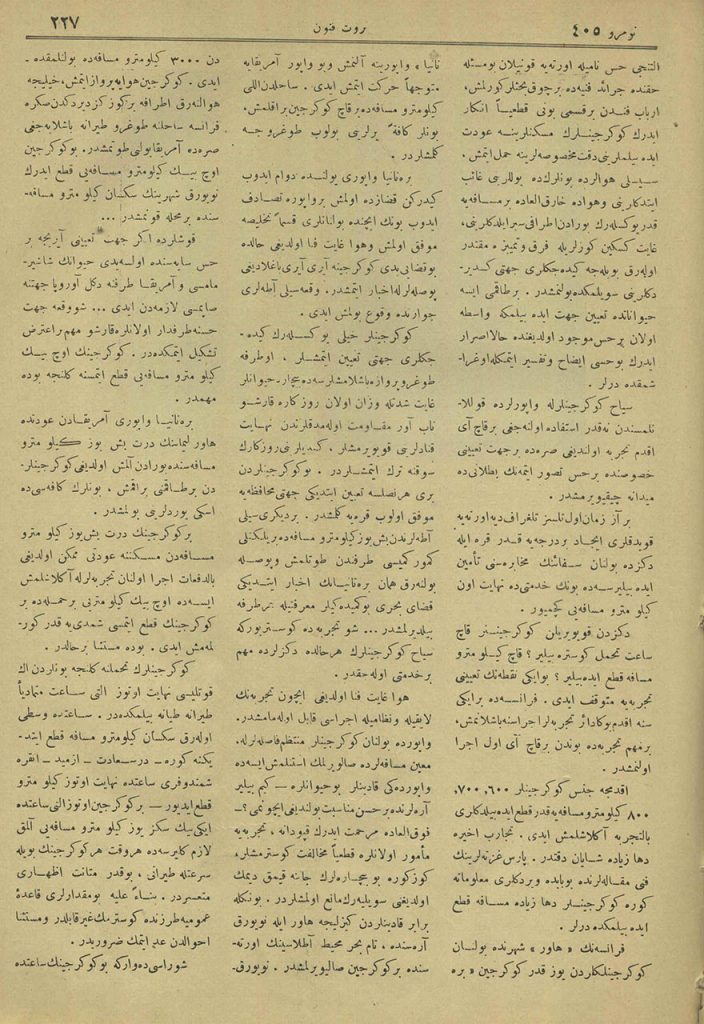 نومرو ٤٠٥
ثروت فنون
٢٢٧
التنجی حس نامیله اورته‌یه قونیلان بومسئله
حقنده جرائد فنیه‌ده برچوق بحثلر کورلمش،
ارباب فندن برقسمی بونی قطعیاً انکار
ایدرك کوکرجینلرك مسکنلرینه عودت
ایده بیلملرینی دقت مخصوصه لرینه حمل ایتمش.
سیسلی هوالرده بونلرك‌ده یوللرینی غائب
ایتدکلرینی وهواده خارق العاده برمسافه‌یه
قدر یوکسله‌رك بورادن اطرافی سیر ایلدکلرینی،
غایت کسکین کوزلریله فرق وتمیزه مقتدر
اوله‌رق بویله‌جه کیده‌جکلری جهتی کسدیر-
دکلرینی سویلمکده بولنمشدر . برطاقمی ایسه
حیواناتده تعیین جهت ایده بیلمکه واسطه
اولان برحس موجود اولدیغنده حالا اصرار
ایدرك بوحسی ایضاح وتفسیر ایتمکله اوغرا-
شمقده درلر .
سیاح کوکرجینلرله واپورلرده قوللا-
نلمسندن نه‌قدر استفاده اولنه‌جغی برقاچ آی
اقدم تجربه اولندیغی صره‌ده برجهت تعیینی
خصوصنده برحس تصور ایتمه‌نك بطلانی‌ده
میدانه چیقیویرمشدر .
بر آز زمان اول تلسز تلغراف دیه اورته‌یه
قویدقلری ایجاد بردرجه‌یه قدر قره ایله
دکزده بولنان سفائنك مخابره‌سنی تأمین
ایده بیلیرسه‌ده بونك خدمتی‌ده نهایت اون
کیلو مترو مسافه‌یی کچمیور .
دکزدن قویویریلن کوکرجینلر قاچ
ساعت تحمل کوستره بیلیر ؟ قاچ کیلو مترو
مسافه قطع ایده بیلیر ؟ بوایکی نقطه‌نك تعیینی
تجربه‌یه متوقف ایدی . فرانسه‌ده برایکی
سنه اقدم بوکادائر تجربه‌لر اجراسنه باشلانمش،
برمهم تجربه‌ده بوندن برقاچ آی اول اجرا
اولنمشدر .
اقدمجه جنس کوکرجینلر ٦٠٠، ٧٠٠،
٨٠٠ کیلو مترو مسافه‌یه قدر قطع ایده بیلدکلری
بالتجربه آکلاشلمش ایدی . تجارب اخیره
دها زیاده شایان دقتدر . پارس غزته‌لرینك
فنی مقاله‌لرنده بوبابده ویردکلری معلوماته
کوره کوکرجینلر دها زیاده مسافه قطع
ایده بیلمکده درلر .
فرانسه‌نك « هاور » شهرنده بولنان
کوکرجینلکاردن یوز قدر کوکرجین « بره
تانیا » واپورینه آلنمش وبو واپور آمریقایه
متوجهاً حرکت ایتمش ایدی . ساحلدن اللی
کیلو مترو مسافه‌ده برقاچ کوکرجین براقلمش،
بونلر کافةً یرلرینی بولوب طوغریجه
کلمشلردر .
بره‌تانیا واپوری یولنده دوام ایدوب
کیدرکن قضازده اولمش برواپوره تصادف
ایدوب بونك ایچنده بولنانلری قسماً تخلیصه
موفق اولمش وهوا غایت فنا اولدیغی حالده
بوقضایی یدی کوکرجینه آیری آیری باغلادیغی
پوصله لرله اخبار ایتمشدر. وقعه سیلی آطه‌لری
جوارنده وقوع بولمش ایدی .
کوکرجینلر خیلی یوکسله‌رك کیده-
جکلری جهتی تعیین ایتمشلر ، اوطرفه
طوغرو پروازه باشلامشلرسه‌ده بیچاره حیوانلر
غایت شدتله وزان اولان روزکاره قارشو
تاب آور مقاومت اوله‌مدقلرندن نهایت
قنادلرینی قویویرمشلر ، کندیلرینی روزکارك
سوقنه ترك ایتمشلردر . بوکوکرجینلردن
بری هرنصلسه تعیین ایتدیکی جهتی محافظه‌یه
موفق اولوب قره‌یه کلمشدر . بردیکری سیلی
آطه‌لرندن بش‌یوز کیلو مترو مسافه‌ده بریلکنلی
کمور کمیسی طرفندن طوتلمش وپوصله
بولنه‌رق همان بره‌تانیانك اخبار ایتدیکی
قضای بحری بوکمیده‌کیلر معرفتیله هرطرفه
بیلدیرلمشدر ... شو تجربه‌ده کوستریورکه
سیاح کوکرجینلرك هرحالده دکزلرده مهم
برخدمتی اوله‌جقدر .
هوا غایت فنا اولدیغی ایچون تجربه‌نك
لایقیله ونظامیله اجراسی قابل اوله‌مامشدر.
واپورده بولنان کوکرجینلر منتظم فاصله‌لرله،
معین مسافه‌لرده صالویرلمك استنلمش ایسه‌ده
واپورده‌کی قادینلر بوحیوانلره – کیم بیلیر
آره‌لرنده برحس مناسبت بولندیغی ایچونمی؟ –
فوق العاده مرحمت ایدرك قپودانه ، تجربه‌یه
مأمور اولانلره قطعیاً مخالفت کوسترمشلر،
کوزکوره بوبیچاره‌لرك جانه قیمق دیمك
اولدیغنی سویلیه‌رك مانع اولمشلردر . بونکله
برابر قادینلردن کیزلیجه هاور ایله نویورق
آره‌سنده ، تام بحر محیط آطلاسینك اورته-
سنده برکوکرجین صالیویرلمشدر . نویورق-
دن ٣٠٠٠ کیلو مترو مسافه‌ده بولنلمقده-
ایدی . کوکرجین هوایه پرواز ایتمش، خیلیجه
هوالنه‌رق اطرافه برکوز کزدیردکدن صکره
فرانسه ساحلنه طوغرو طیرانه باشلایه‌جغی
صره‌ده آمریقا یولنی طوتمشدر. بوکوکرجین
اوچ بیك کیلو مترو مسافه‌یی قطع ایدرك
نویورق شهرینك سکسان کیلو مترو مسافه-
سنده برمحله قونمشدر ...
قوشلرده اکر جهت تعیینی آیریجه بر
حس سایه‌سنده اولسه‌یدی حیوانك شاشیر-
مامسی وآمریقا طرفنه دکل آوروپا جهتنه
صاپمسی لازمه‌دن ایدی ... شووقعه جهت
حسنه طرفدار اولانلره قارشو مهم براعتراض
تشکیل ایتمکده‌در . کوکرجینك اوچ بیك
کیلو مترو مسافه‌یی قطع ایتمسنه کلنجه بوده
مهمدر .
بره‌تانیا واپوری آمریقادن عودتنده
هاور لیماننك درت بش یوز کیلو مترو
مسافه‌سنده بورادن آلمش اولدیغی کوکرجینلر-
دن برطاقمنی براقمش ، بونلرك کافه‌سی‌ده
اسکی یوردلرینی بولمشدر .
برکوکرجینك درت بش‌یوز کیلو مترو
مسافه‌دن مسکننه عودتی ممکن اولدیغی
بالدفعات اجرا اولنان تجربه‌لرله آکلاشلمش
ایسه‌ده اوچ بیك کیلو مترویی برحمله‌ده بر
کوکرجینك قطع ایتمسی شمدی‌یه قدر کور-
لمه‌مش ایدی . بوده مستثنا برحالدر .
کوکرجینلرك تحملنه کلنجه بونلردن اك
قوتلیسی نهایت اوتوز التی ساعت متمادیاً
طیرانه طیانه بیلمکده‌در . ساعتده وسطی
اوله‌رق سکسان کیلو مترو مسافه قطع ایتد-
یکنه کوره – درسعادت – ازمید – انقره
شمندوفری ساعتده نهایت اوتوز کیلو مترو
قطع ایدیور – برکوکرجین اوتوز التی ساعتده
ایکی بیك سکز یوز کیلو مترو مسافه‌یی آلمق
لازم کلیرسه‌ده هروقت هر کوکرجینك بویله
سرعتله طیرانی ، بوقدر متانت اظهاری
متعسردر . بناءً علیه بومقدارلری قاعدهٔ
عمومیه طرزنده کوسترمك غیرقابلدر ومستثنا
احوالدن عد ایتمك ضروریدر .
شوراسی‌ده وارکه بوکوکرجینك ساعتده